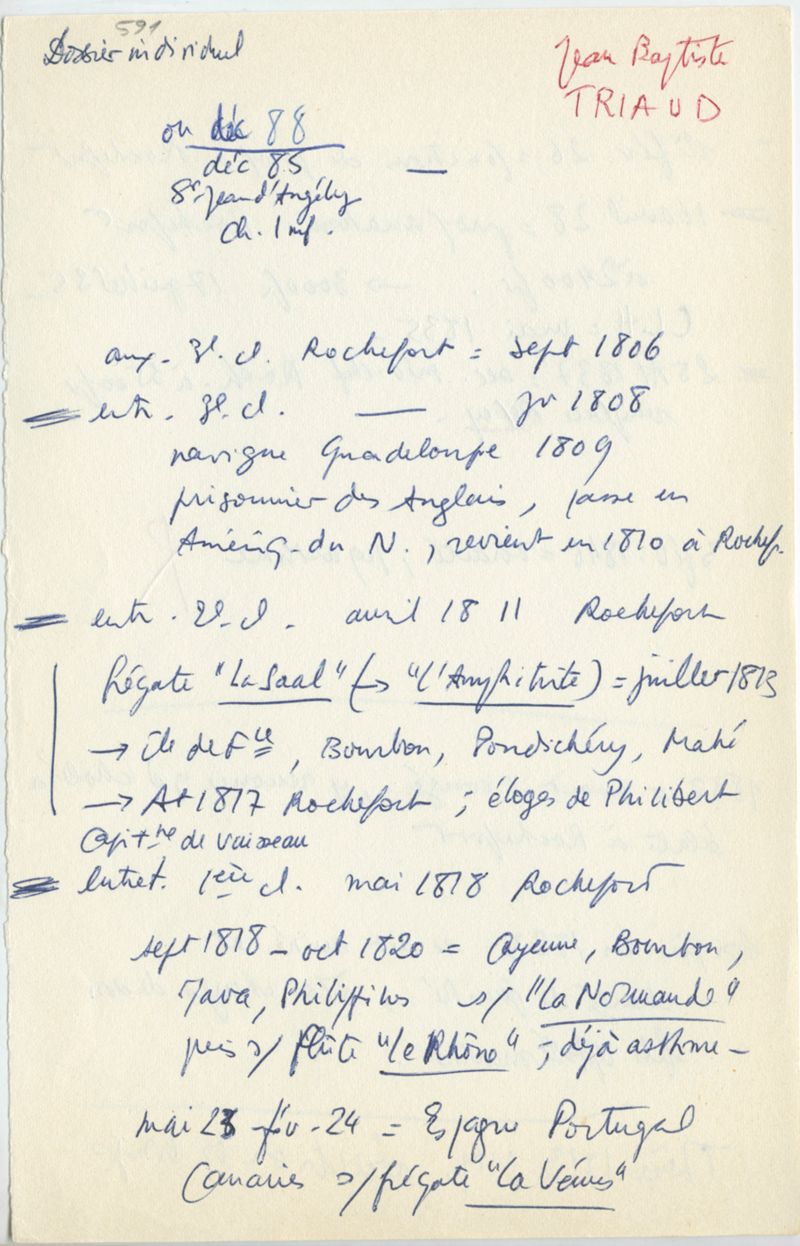 591
Dossier individuel
Jean Baptiste
TRIAUD
ou déc 88
déc 85
St-Jean d'Angély
Ch. Inf.
aux. 3e. cl. Rochefort = sept 1806
entr. 3e. cl. — jv 1808
navigue Guadeloupe 1809
prisonnier des Anglais, passe en
Amériq. du N., revient en 1810 à Rochef.
entr. 2e. cl. avril 1811 Rochefort
frégate "La Saal" (→ "l'Amphitrite) = juillet 1813
→ île de Fce, Bourbon, Pondichéry, Mahé
→ At 1817 Rochefort ; éloges de Philibert
Capitne de vaisseau
entret. 1ère cl. mai 1818 Rochefort
sept 1818 - oct 1820 = Cayenne, Bourbon,
Java, Philippines s/ "La Normande"
puis s/ flûte "Le Rhône" ; déjà asthme -
mai 23 - fév. 24 = Espagne Portugal
Canaries s/ frégate "La Vénus"